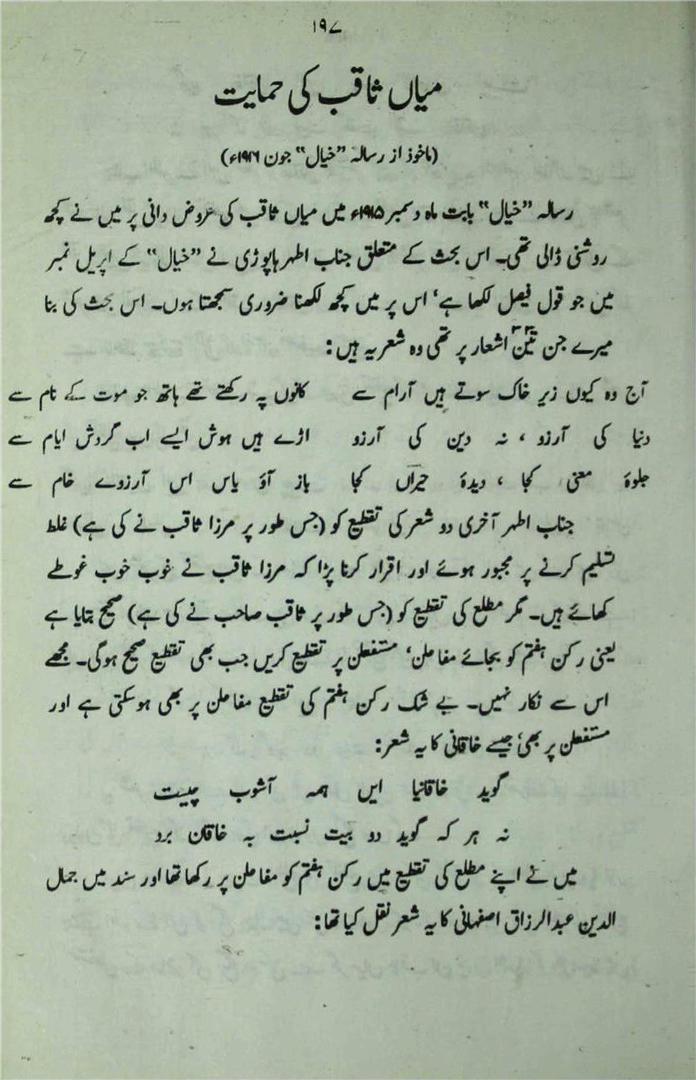 ۱۹۷
میاں ثاقب کی حمایت
(ماخوذ از رسالہ "خیال" جون ۱۹۱۶ء)
رسالہ "خیال" بابت ماہ دسمبر ۱۹۱۵ء میں میاں ثاقب کی عروض دانی پر میں نے کچھ
روشنی ڈالی تھی۔ اس بحث کے متعلق جناب اطہر ہاپوڑی نے "خیال" کے اپریل نمبر
میں جو قول فیصل لکھا ہے، اس پر میں کچھ لکھنا ضروری سمجھتا ہوں۔ اس بحث کی بنا
میرے جن تین اشعار پر تھی وہ شعر یہ ہیں:
آج وہ کیوں زیر خاک سوتے ہیں آرام سے کانوں پہ رکھتے تھے ہاتھ جو موت کے نام سے
دنیا کی آرزو، نہ دین کی آرزو اڑے ہیں ہوش ایسے اب گردش ایام سے
جلوۂ معنی کجا، دیدۂ حیراں کجا باز آؤ یاس اس آرزوے خام سے
جناب اطہر آخری دو شعر کی تقطیع کو (جس طور پر مرزا ثاقب نے کی ہے) غلط
تسلیم کرنے پر مجبور ہوئے اور اقرار کرنا پڑا کہ مرزا ثاقب نے خوب خوب غوطے
کھائے ہیں۔ مگر مطلع کی تقطیع کو (جس طور پر ثاقب صاحب نے کی ہے) صحیح بتایا ہے
یعنی رکن ہفتم کو بجائے مفاعلن، مستفعلن پر تقطیع کریں جب بھی تقطیع صحیح ہوگی۔ مجھے
اس سے نکار نہیں۔ بے شک رکن ہفتم کی تقطیع مفاعلن پر بھی ہوسکتی ہے اور
مستفعلن پر بھی، جیسے خاقانی کا یہ شعر:
گوید خاقانیا ایں ہمہ آشوب چیست
نہ ہر کہ گوید دو بیت نسبت بہ خاقان برد
میں نے اپنے مطلع کی تقطیع میں رکن ہفتم کو مفاعلن پر رکھا تھا اور سند میں جمال
الدین عبدالرزاق اصفہانی کا یہ شعر نقل کیا تھا: